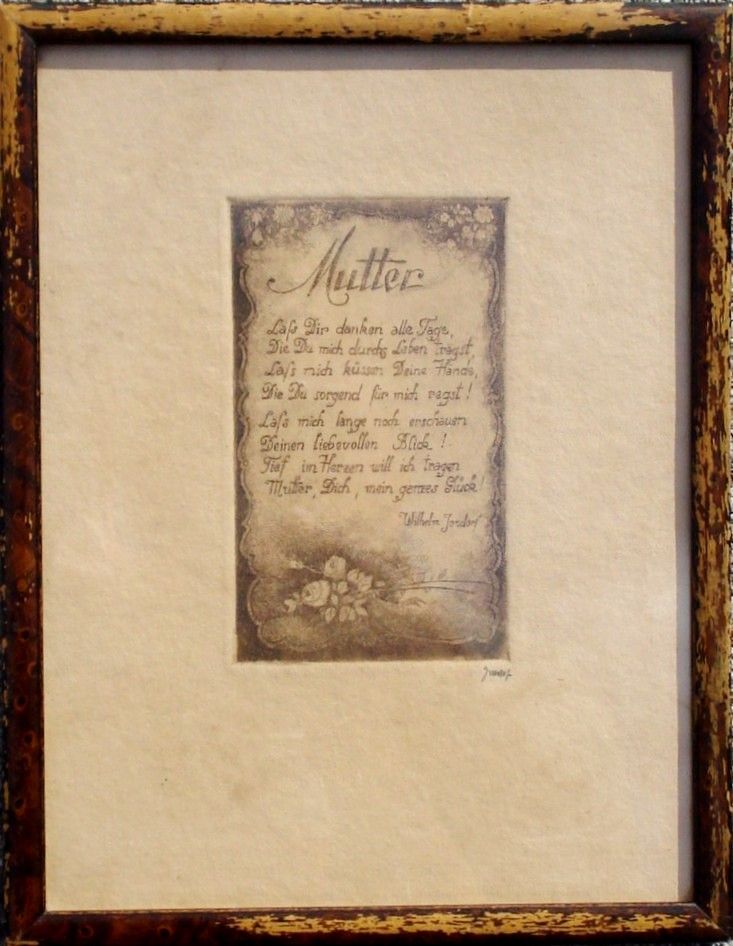 Mutter
Läſs Dir danken alle Tage,
Die Du mich durchs Leben trägst,
Läſs mich küssen Deine Hände,
Die Du sorgend für mich regst!
Läſs mich lange noch erschauen
Deinen liebevollen Blick!
Tief im Herzen will ich tragen
Mutter, Dich, mein ganzes Glück!
Wilhelm